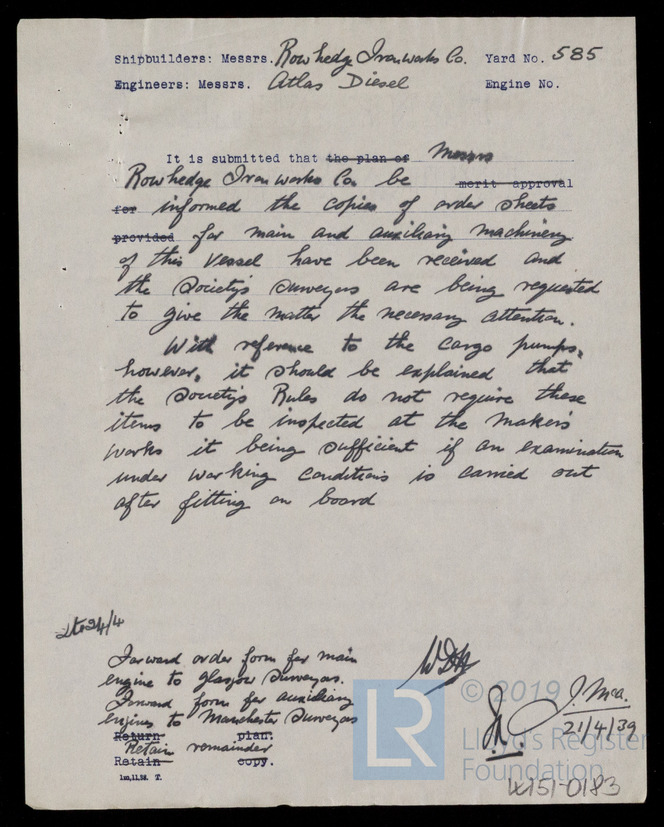 Shipbuilders: Messrs. Rowhedge Ironworks Co. Yard No. 585
Engineers: Messrs. Atlas Diesel Engine No.
It is submitted that the plan of Messrs
Rowhedge Iron works Co. be merit approval
for informed the copies of order sheets
provided for main and auxiliary machinery
of this vessel have been received and
the Society's Surveyors are being requested
to give the matter the necessary attention.
With reference to the cargo pumps,
however, it should be explained that
the Society's Rules do not require these
items to be inspected at the makers'
works it being sufficient if an examination
under working conditions is carried out
after fitting on board
24/4
Forward order form for main
engine to Glasgow Surveyors.
Forward form for auxiliary
engines to Manchester Surveyors
Return plan.
Retain remainder
Retain copy.
1m,11,38. T.
WDH
J. McA.
21/4/39
© 2019
LR
Lloyd's Register
Foundation
W151-0183